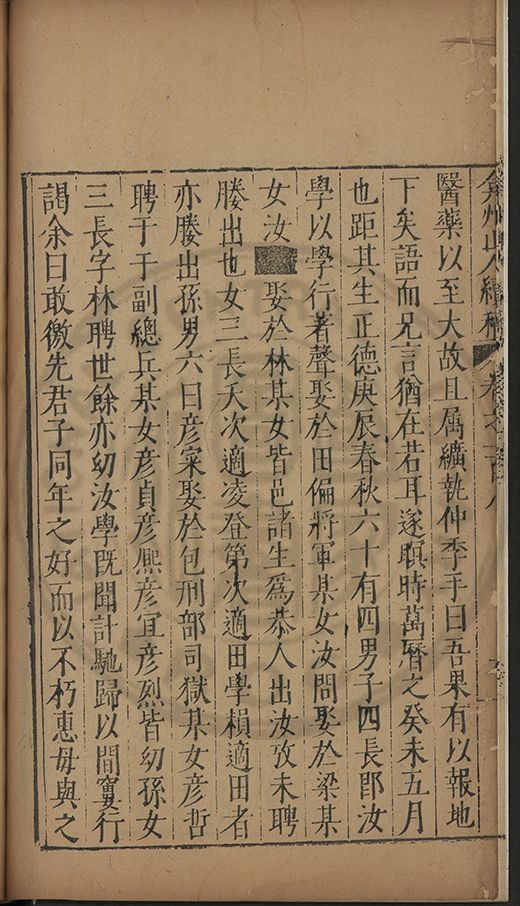 弇州山人續稿 卷之一百八
醫藥以至大故且属纊執仲季手曰吾果有以報地
下矣語而兄言猶在若耳遂瞑時萬曆之癸未五月
也距其生正德庚辰春秋六十有四男子四長即汝
學以學行著聲娶於田偏將軍某女汝問娶於梁某
女汝 娶於林某女皆邑諸生爲恭人出汝攷未聘
媵出也女三長夭次適凌登第次適田學楨適田者
亦媵出孫男六曰彦寀娶於包刑部司獄某女彦哲
聘于于副總兵某女彦貞彦熈彦宜彦烈皆幼孫女
三長字林聘世餘亦幼汝學既聞訃馳歸以間窶行
謁余曰敢徼先君子同年之好而以不朽惠毋與之